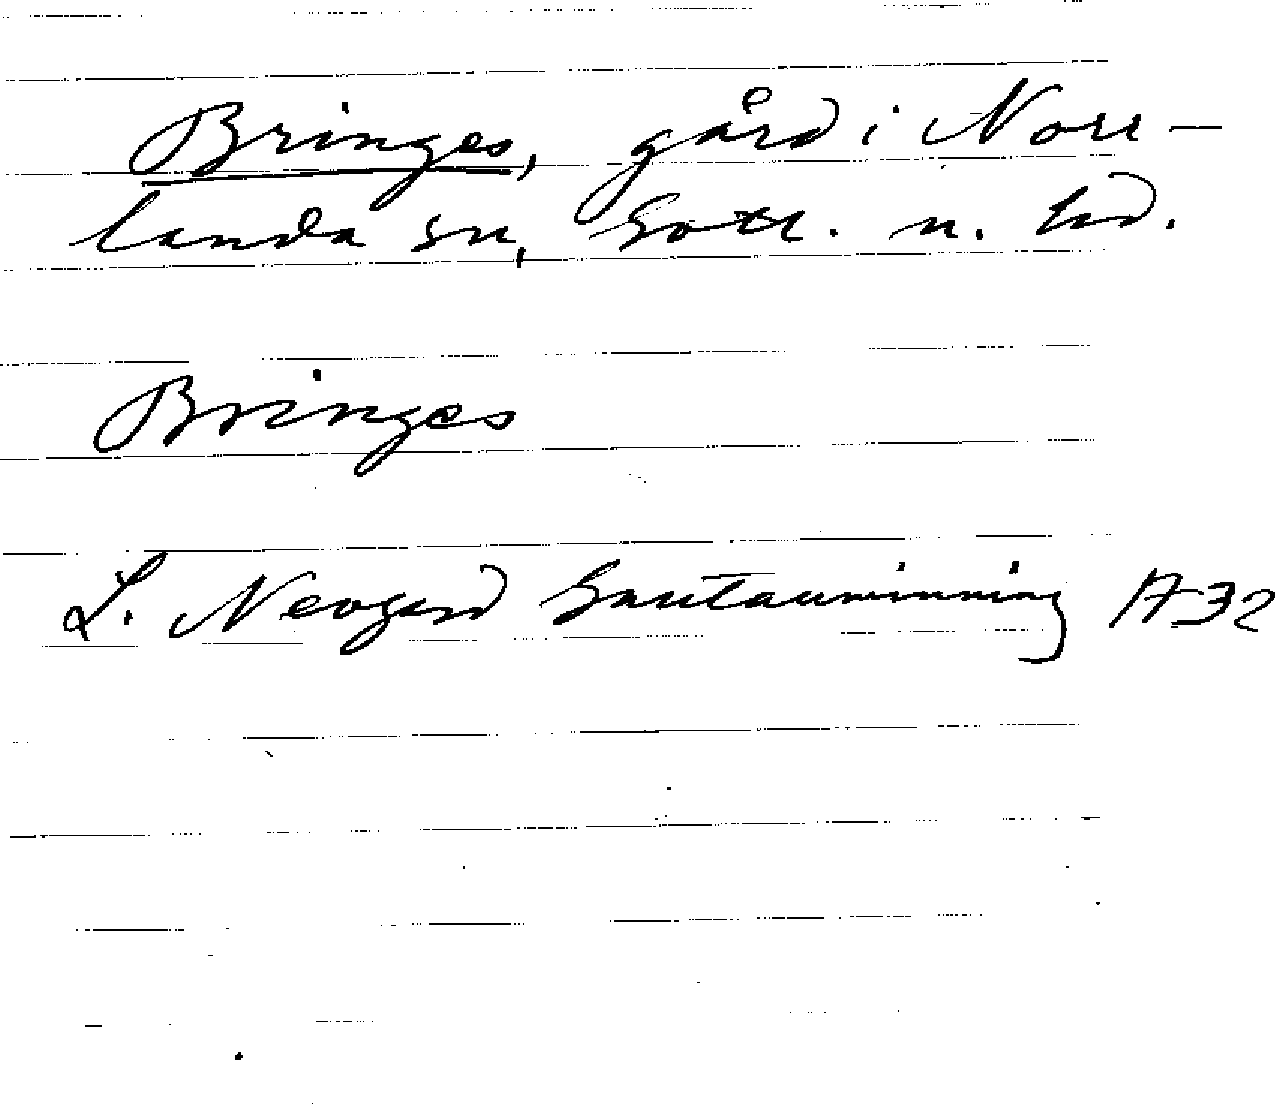 Bringes, gård i Norr-
landa sn, Gotl. n. hd.
Bringes
L. Nevgard Gautauminning A32